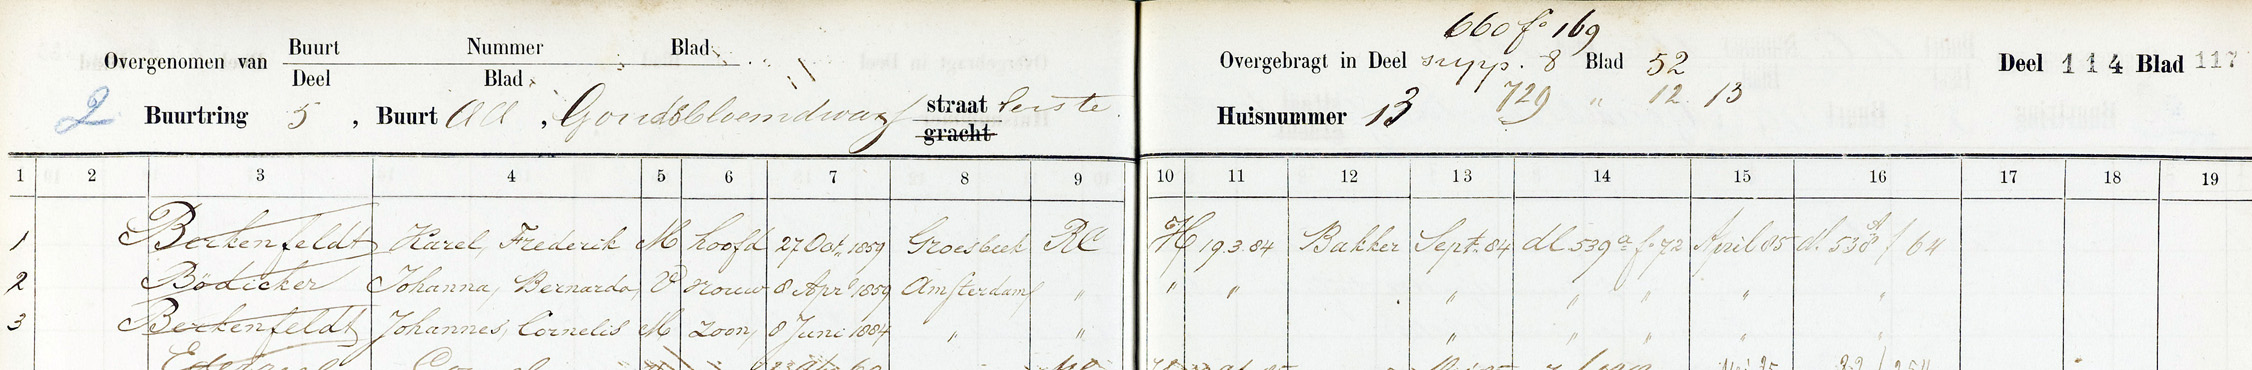 660 fo 169
Overgenomen van Buurt Nummer Blad
Deel Blad
Overgebragt in Deel supp. 8 Blad 52
Deel 114 Blad 117
2 Buurtring 5, Buurt AA, Goudsbloemdwars straat Eerste
gracht
Huisnummer 13 729 " 12 13
1 2 3 4 5 6 7 8 9 10 11 12 13 14 15 16 17 18 19
1 Berkenfeldt Karel, Frederik M hoofd 27 Oct. 1859 Groesbeek RC H 19.3.84 Bakker Sept. 84 dl 539a fo 72 April 85 dl 538A f 64
2 Bödicker Johanna, Bernarda, V vrouw 8 Apr 1859 Amsterdam " " " " " " "
3 Berkenfeldt Johannes, Cornelis M zoon, 8 Juni 1884 " " " " " " "